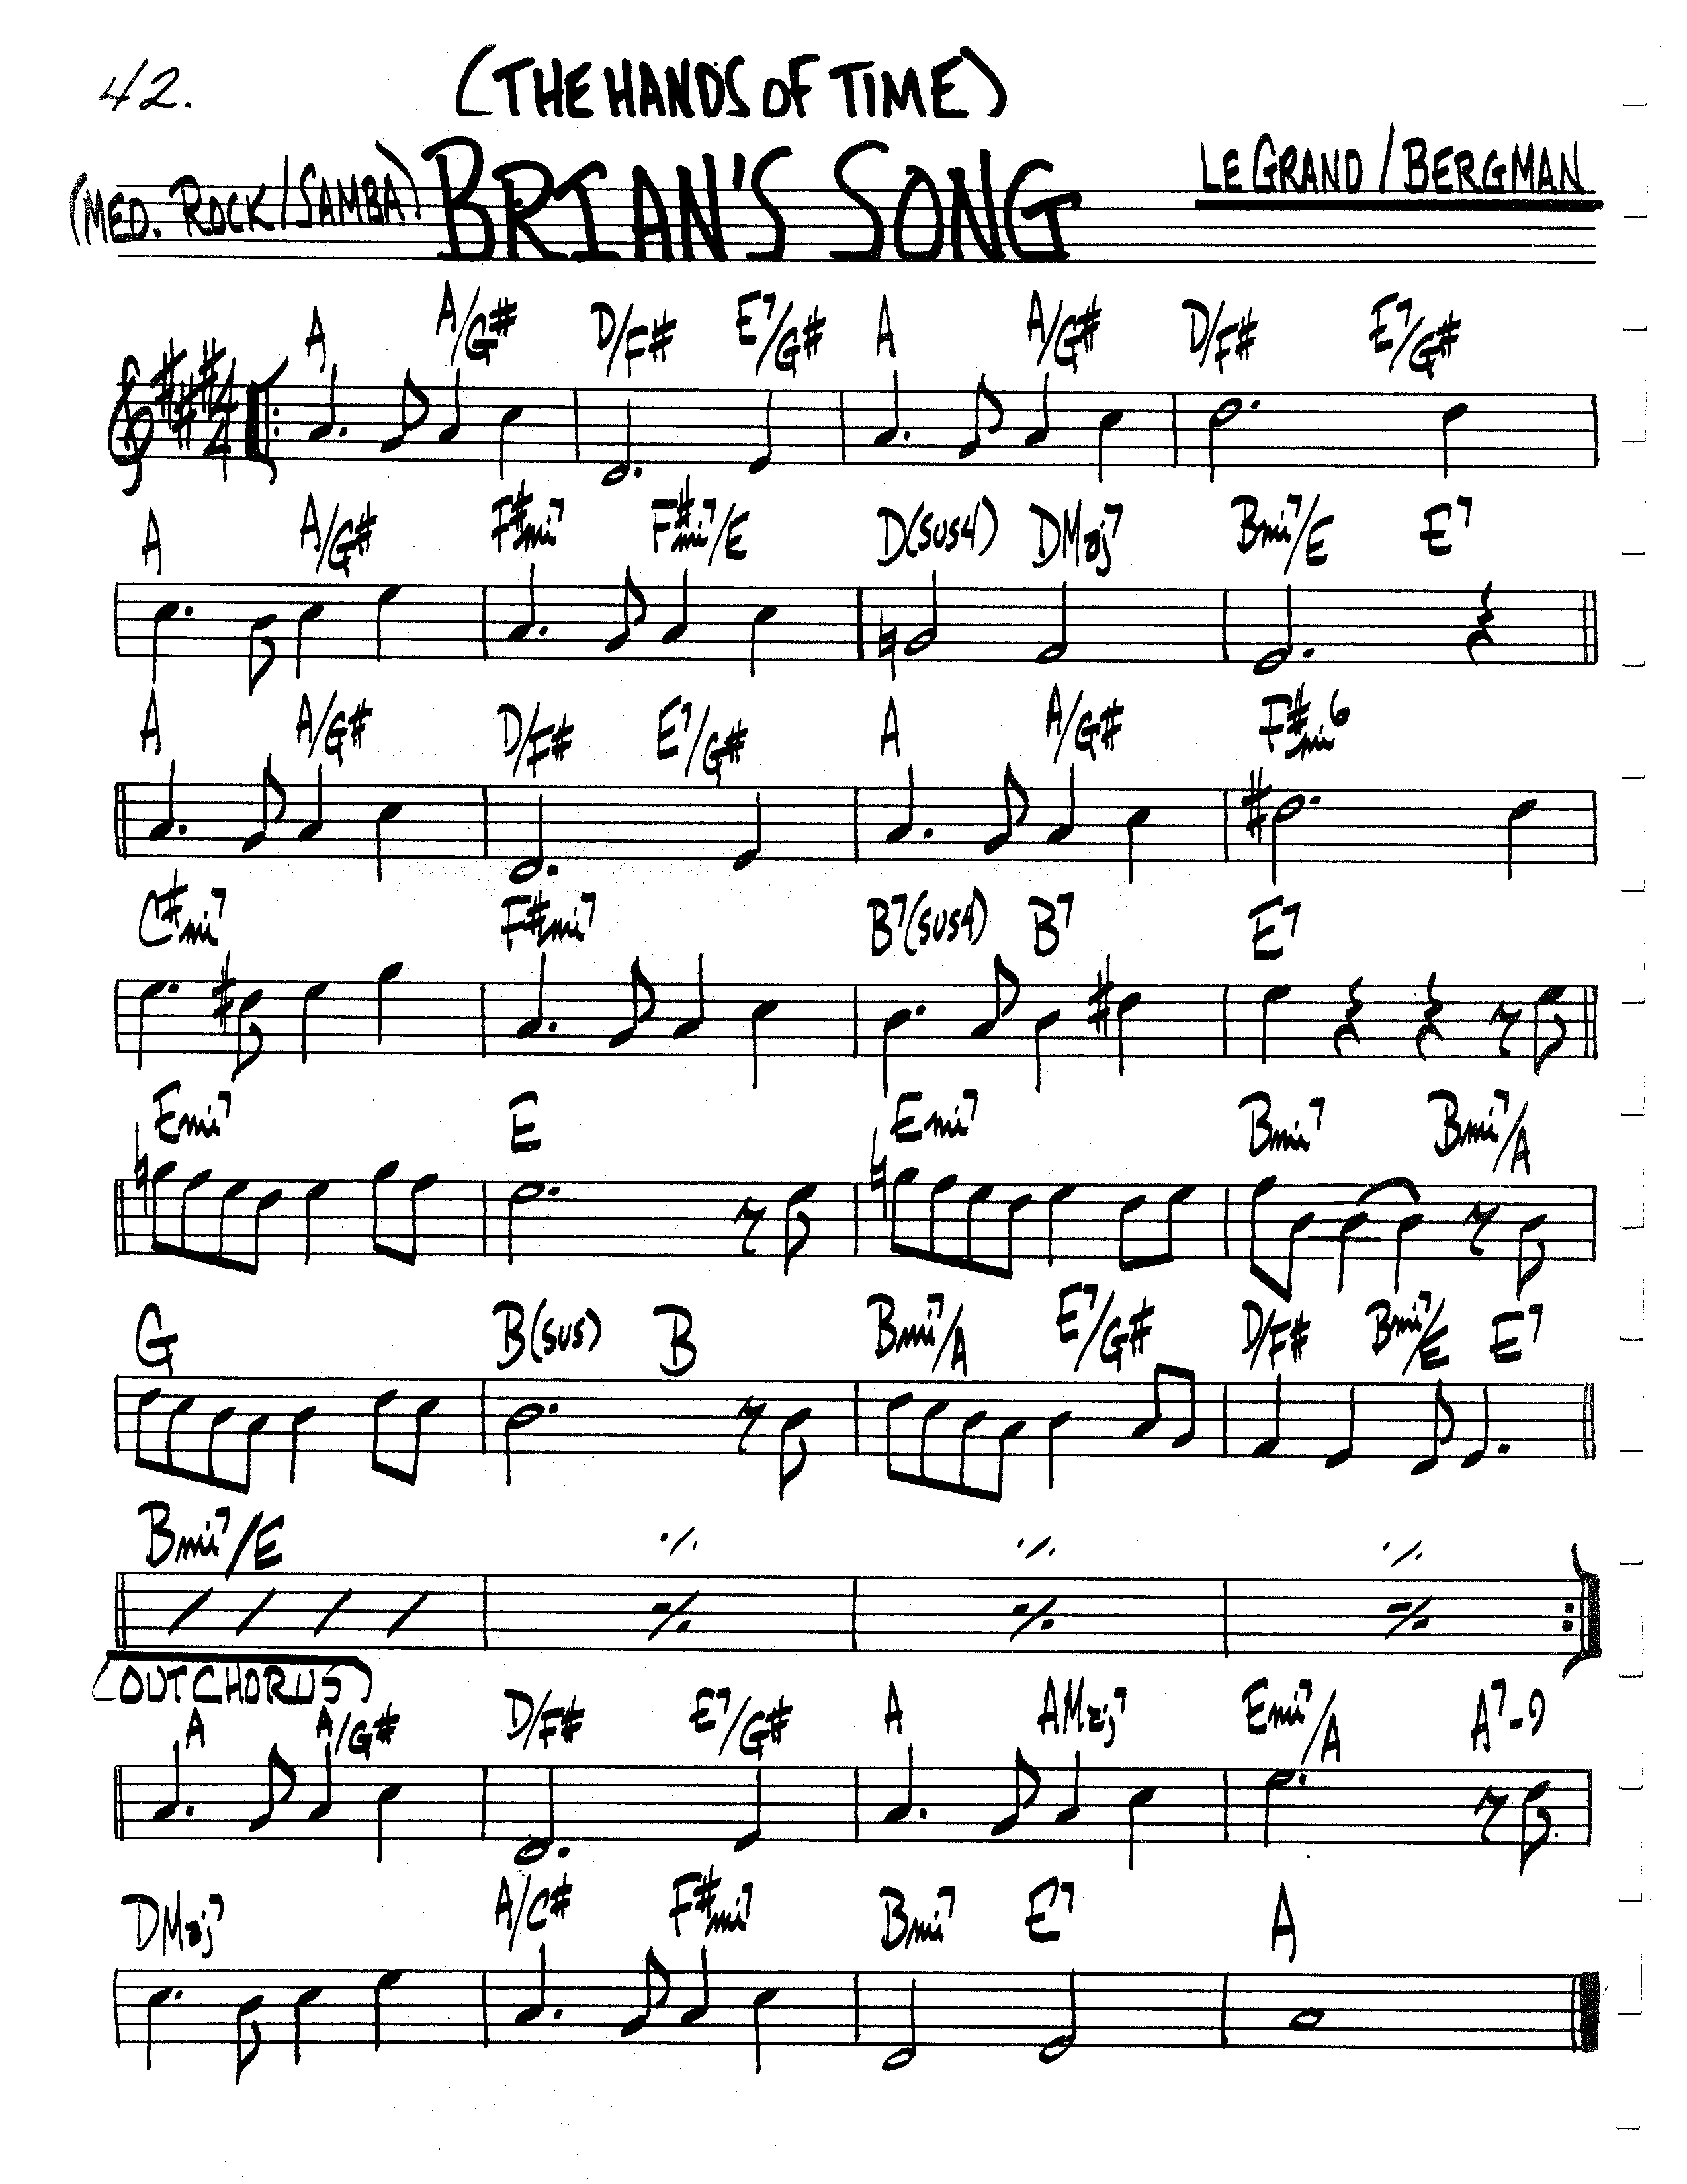 42.
(THE HANDS OF TIME)
(MED. ROCK/SAMBA) BRIAN'S SONG
LEGRAND / BERGMAN
A A/G# D/F# E7/G# A A/G# D/F# E7/G#
4/4
A A/G# F#mi7 F#mi7/E D(SUS4) DMaj7 Bmi7/E E7
A A/G# D/F# E7/G# A A/G# F#mi6
C#mi7 F#mi7 B7(SUS4) B7 E7
Emi7 E Emi7 Bmi7 Bmi7/A
G B(SUS) B Bmi7/A E7/G# D/F# Bmi7/E E7
Bmi7/E
(OUTCHORUS)
A A/G# D/F# E7/G# A AMaj7 Emi7/A A7-9
DMaj7 A/C# F#mi7 Bmi7 E7 A